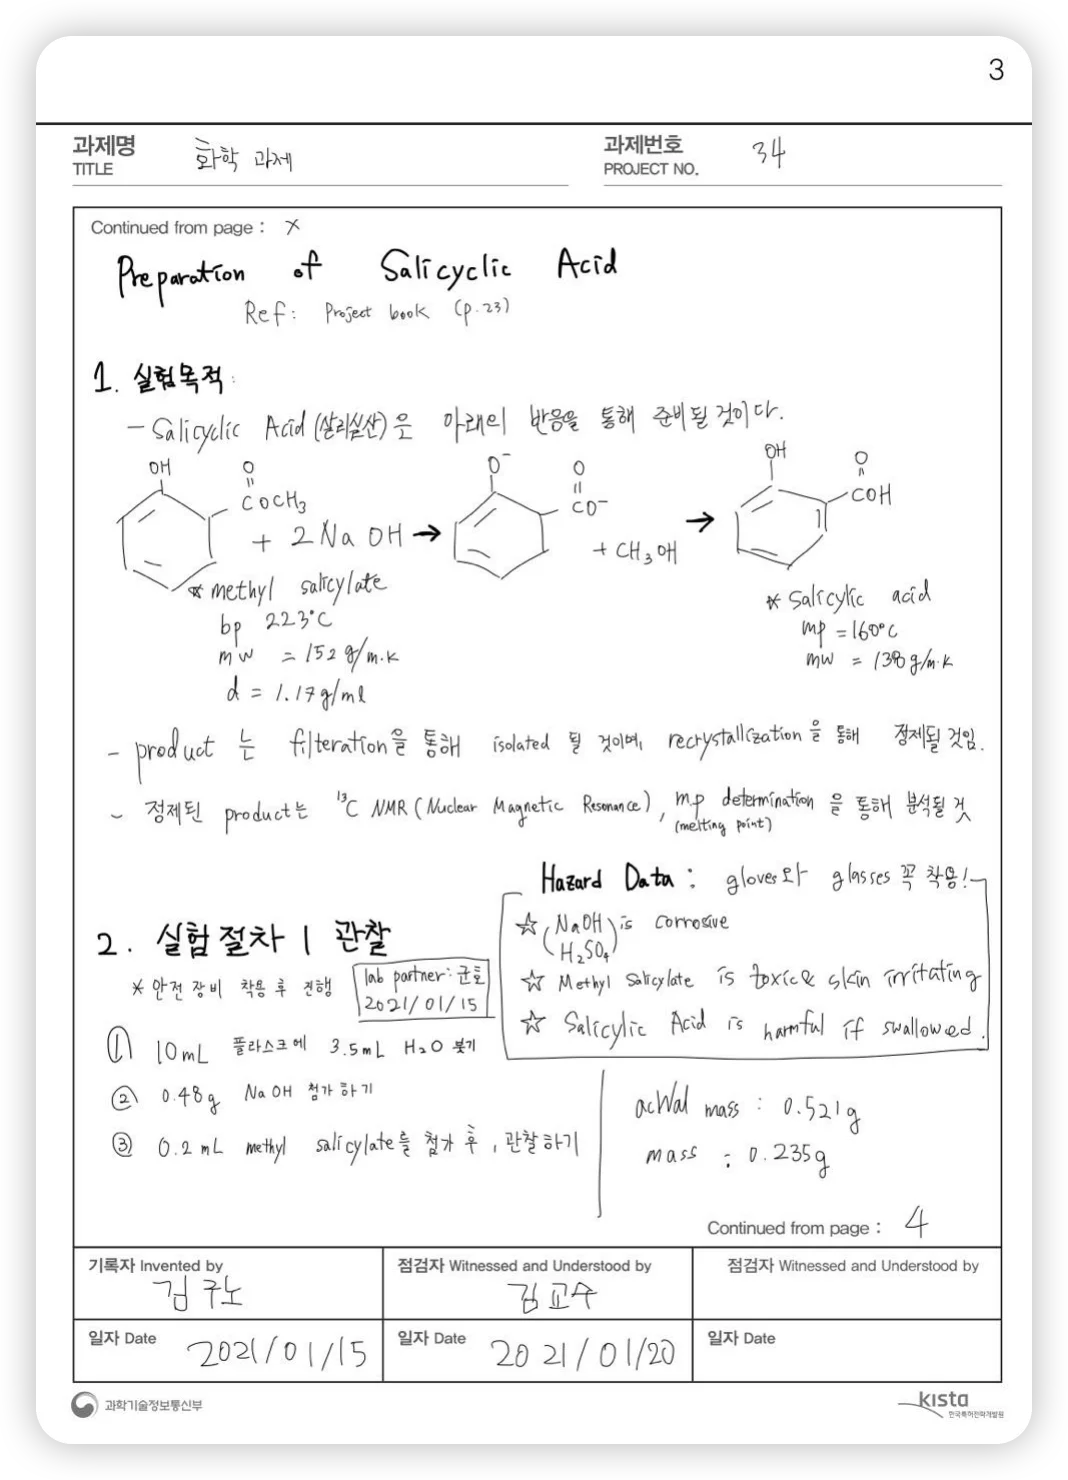 3
과제명
TITLE
화학 과제
과제번호
PROJECT NO.
34
Continued from page : X
Preparation of Salicyclic Acid
Ref: Project book (p.23)
1. 실험목적:
- Salicyclic Acid (살리실산)은 아래의 반응을 통해 준비될 것이다.
OH O
COCH3
+ 2NaOH →
O⁻ O
CO⁻
+ CH3OH
→
OH O
COH
* methyl salicylate
bp 223°C
mw = 152 g/m.k
d = 1.17g/ml
* Salicylic acid
mp = 160°C
mw = 138g/m.k
- product 는 filteration을 통해 isolated 될 것이며, recrystallization을 통해 정제될 것임.
- 정제된 product는 ¹³C NMR (Nuclear Magnetic Resonance), mp determination 을 통해 분석될 것
(melting point)
Hazard Data : gloves와 glasses 꼭 착용!
☆ (NaOH
H2SO4) is corrosive
☆ Methyl Salicylate is toxic & skin irritating
☆ Salicylic Acid is harmful if swallowed.
2. 실험절차 | 관찰
* 안전 장비 착용 후 진행
lab partner: 군호
2021/01/15
① 10mL 플라스크에 3.5mL H2O 붓기
② 0.48g NaOH 첨가하기
③ 0.2mL methyl salicylate를 첨가 후, 관찰하기
actual mass : 0.521g
mass : 0.235g
Continued from page : 4
기록자 Invented by
김구노
점검자 Witnessed and Understood by
김교수
점검자 Witnessed and Understood by
일자 Date 2021/01/15
일자 Date 2021/01/20
일자 Date
과학기술정보통신부
kista
한국특허전략개발원